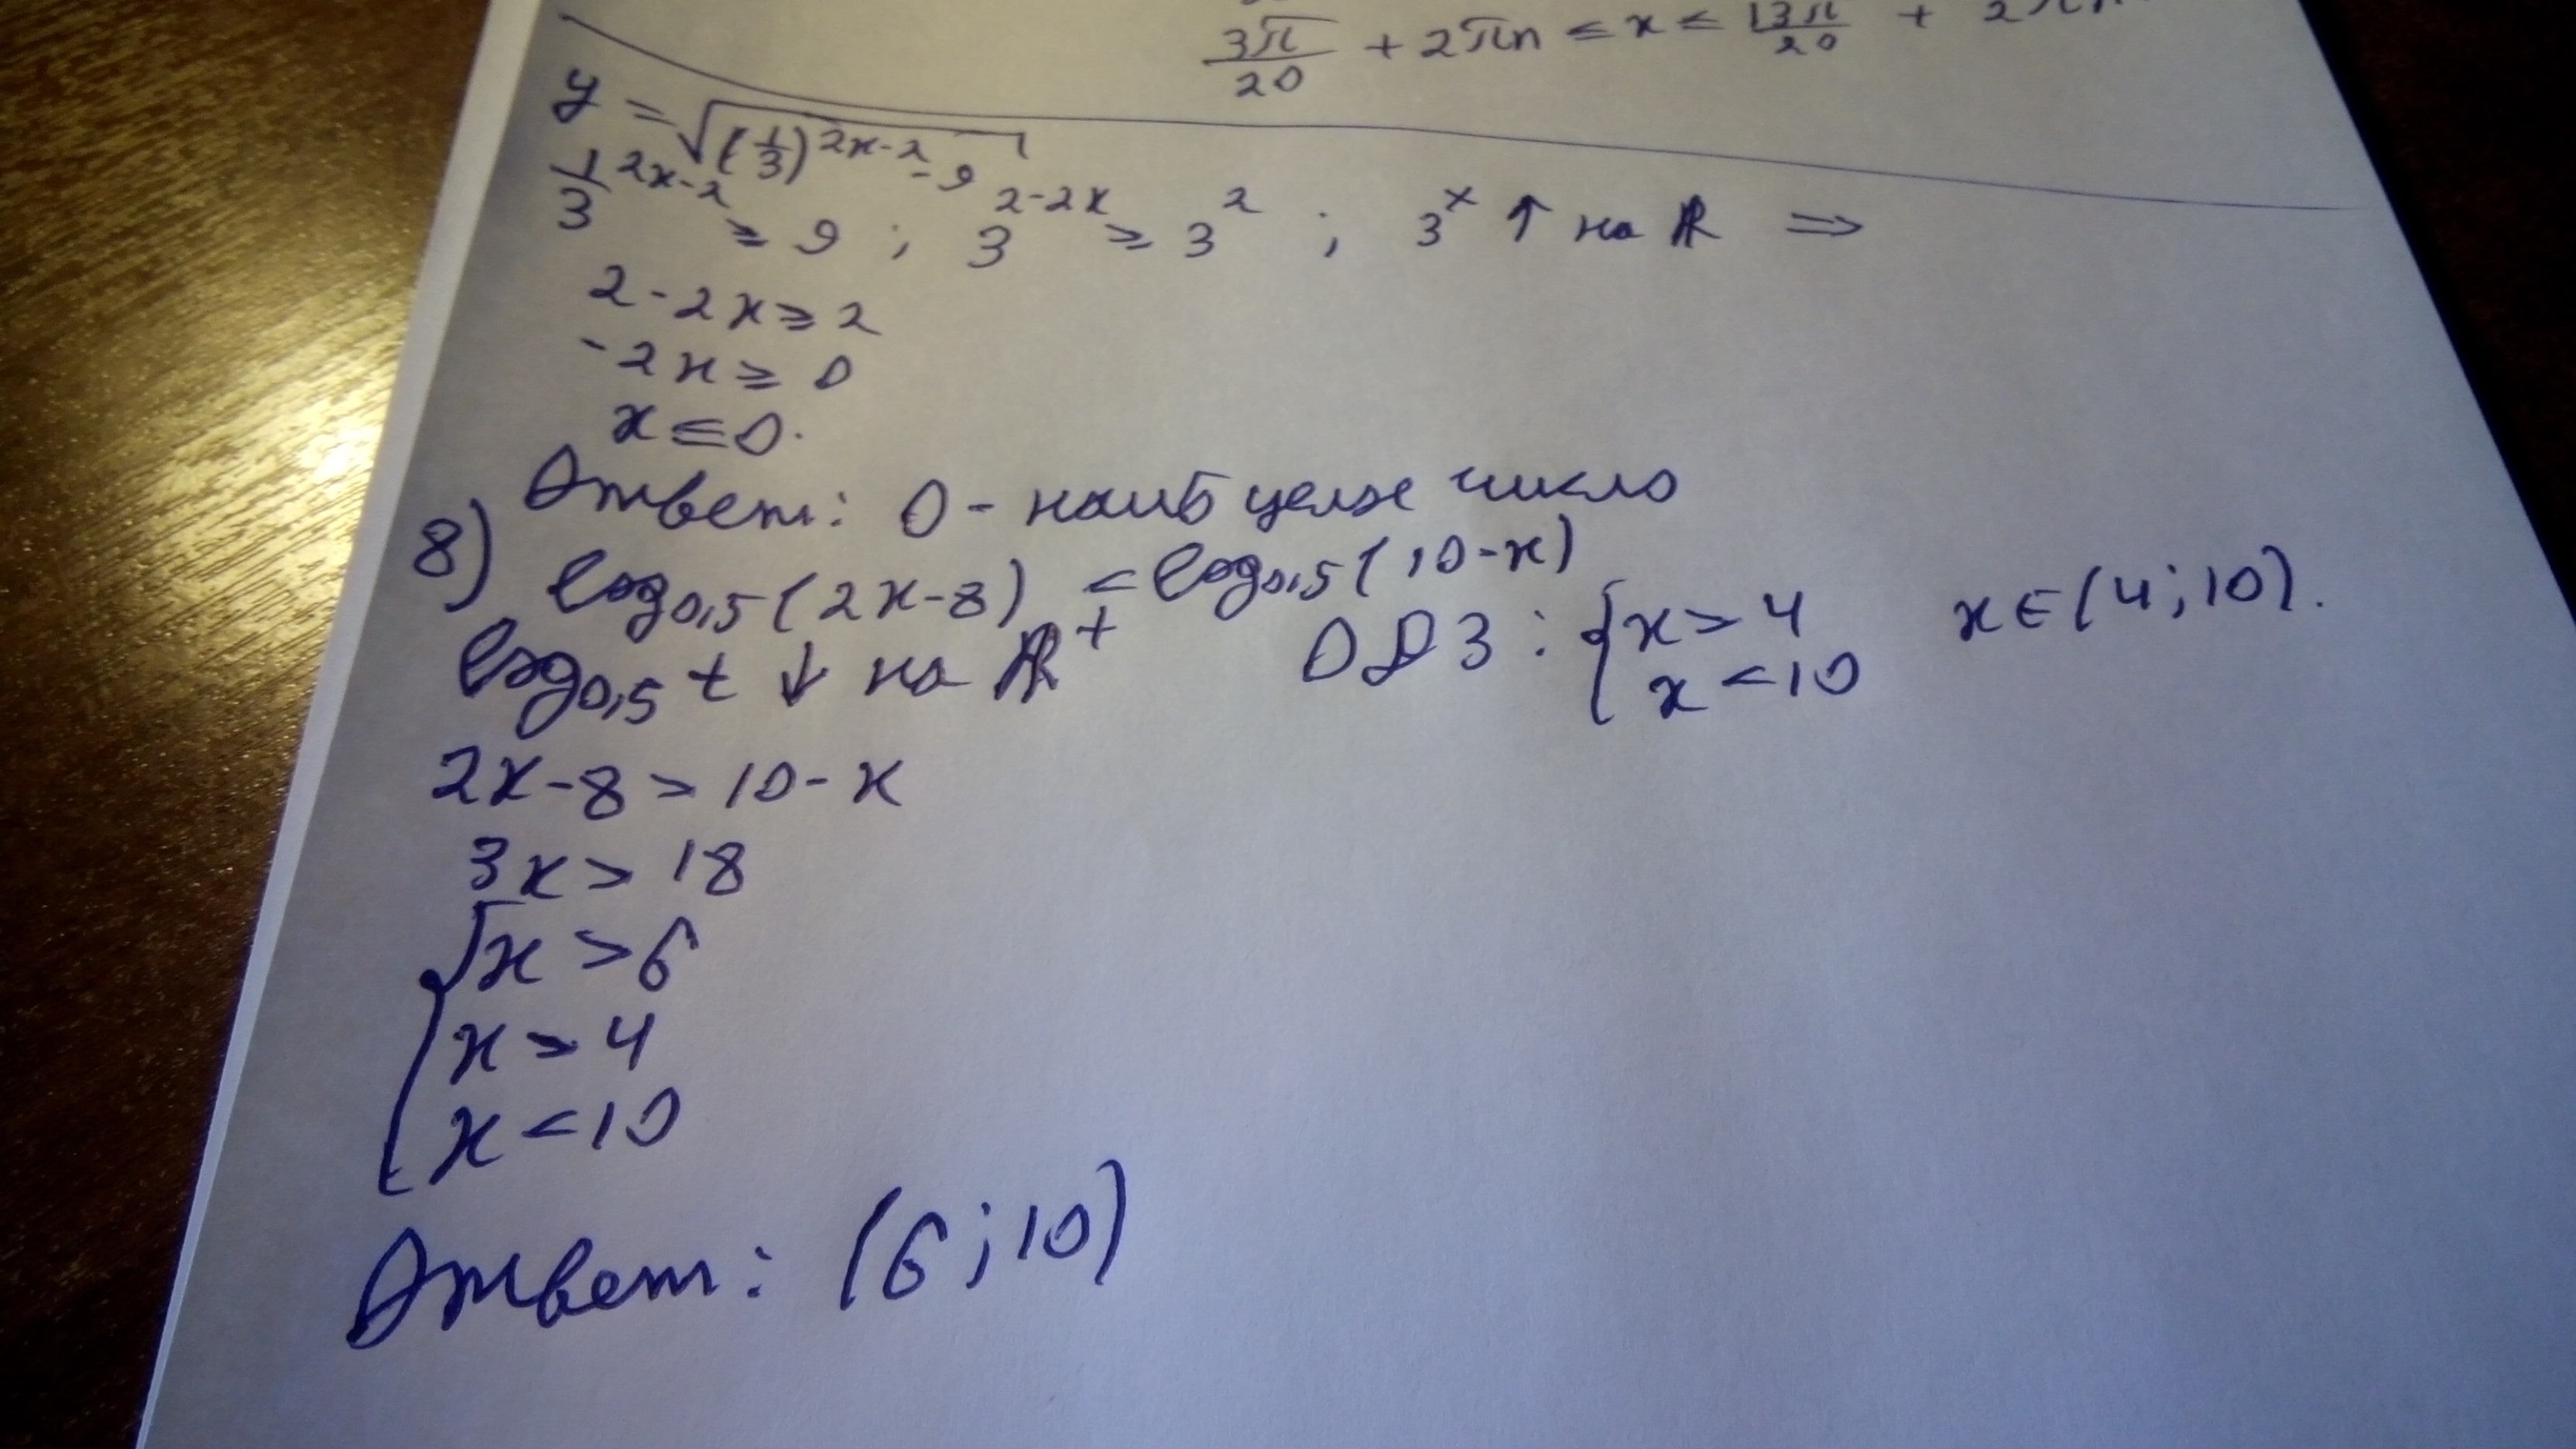 3π/20 + 2πn ≤ x ≤ 13π/20 + 2πn
y = √((1/3)^(2x-2) - 9)
1/3^(2x-2) ≥ 9 ; 3^(2-2x) ≥ 3^2 ; 3^x ↑ на ℝ ⇒
2-2x ≥ 2
-2x ≥ 0
x ≤ 0.
Ответ: 0 - наиб целое число
8) log0,5(2x-8) < log0,5(10-x)
log0,5 t ↓ на ℝ+ ОДЗ: { x > 4 x ∈ (4;10).
x < 10
2x-8 > 10-x
3x > 18
{ x > 6
x > 4
x < 10
Ответ: (6;10)